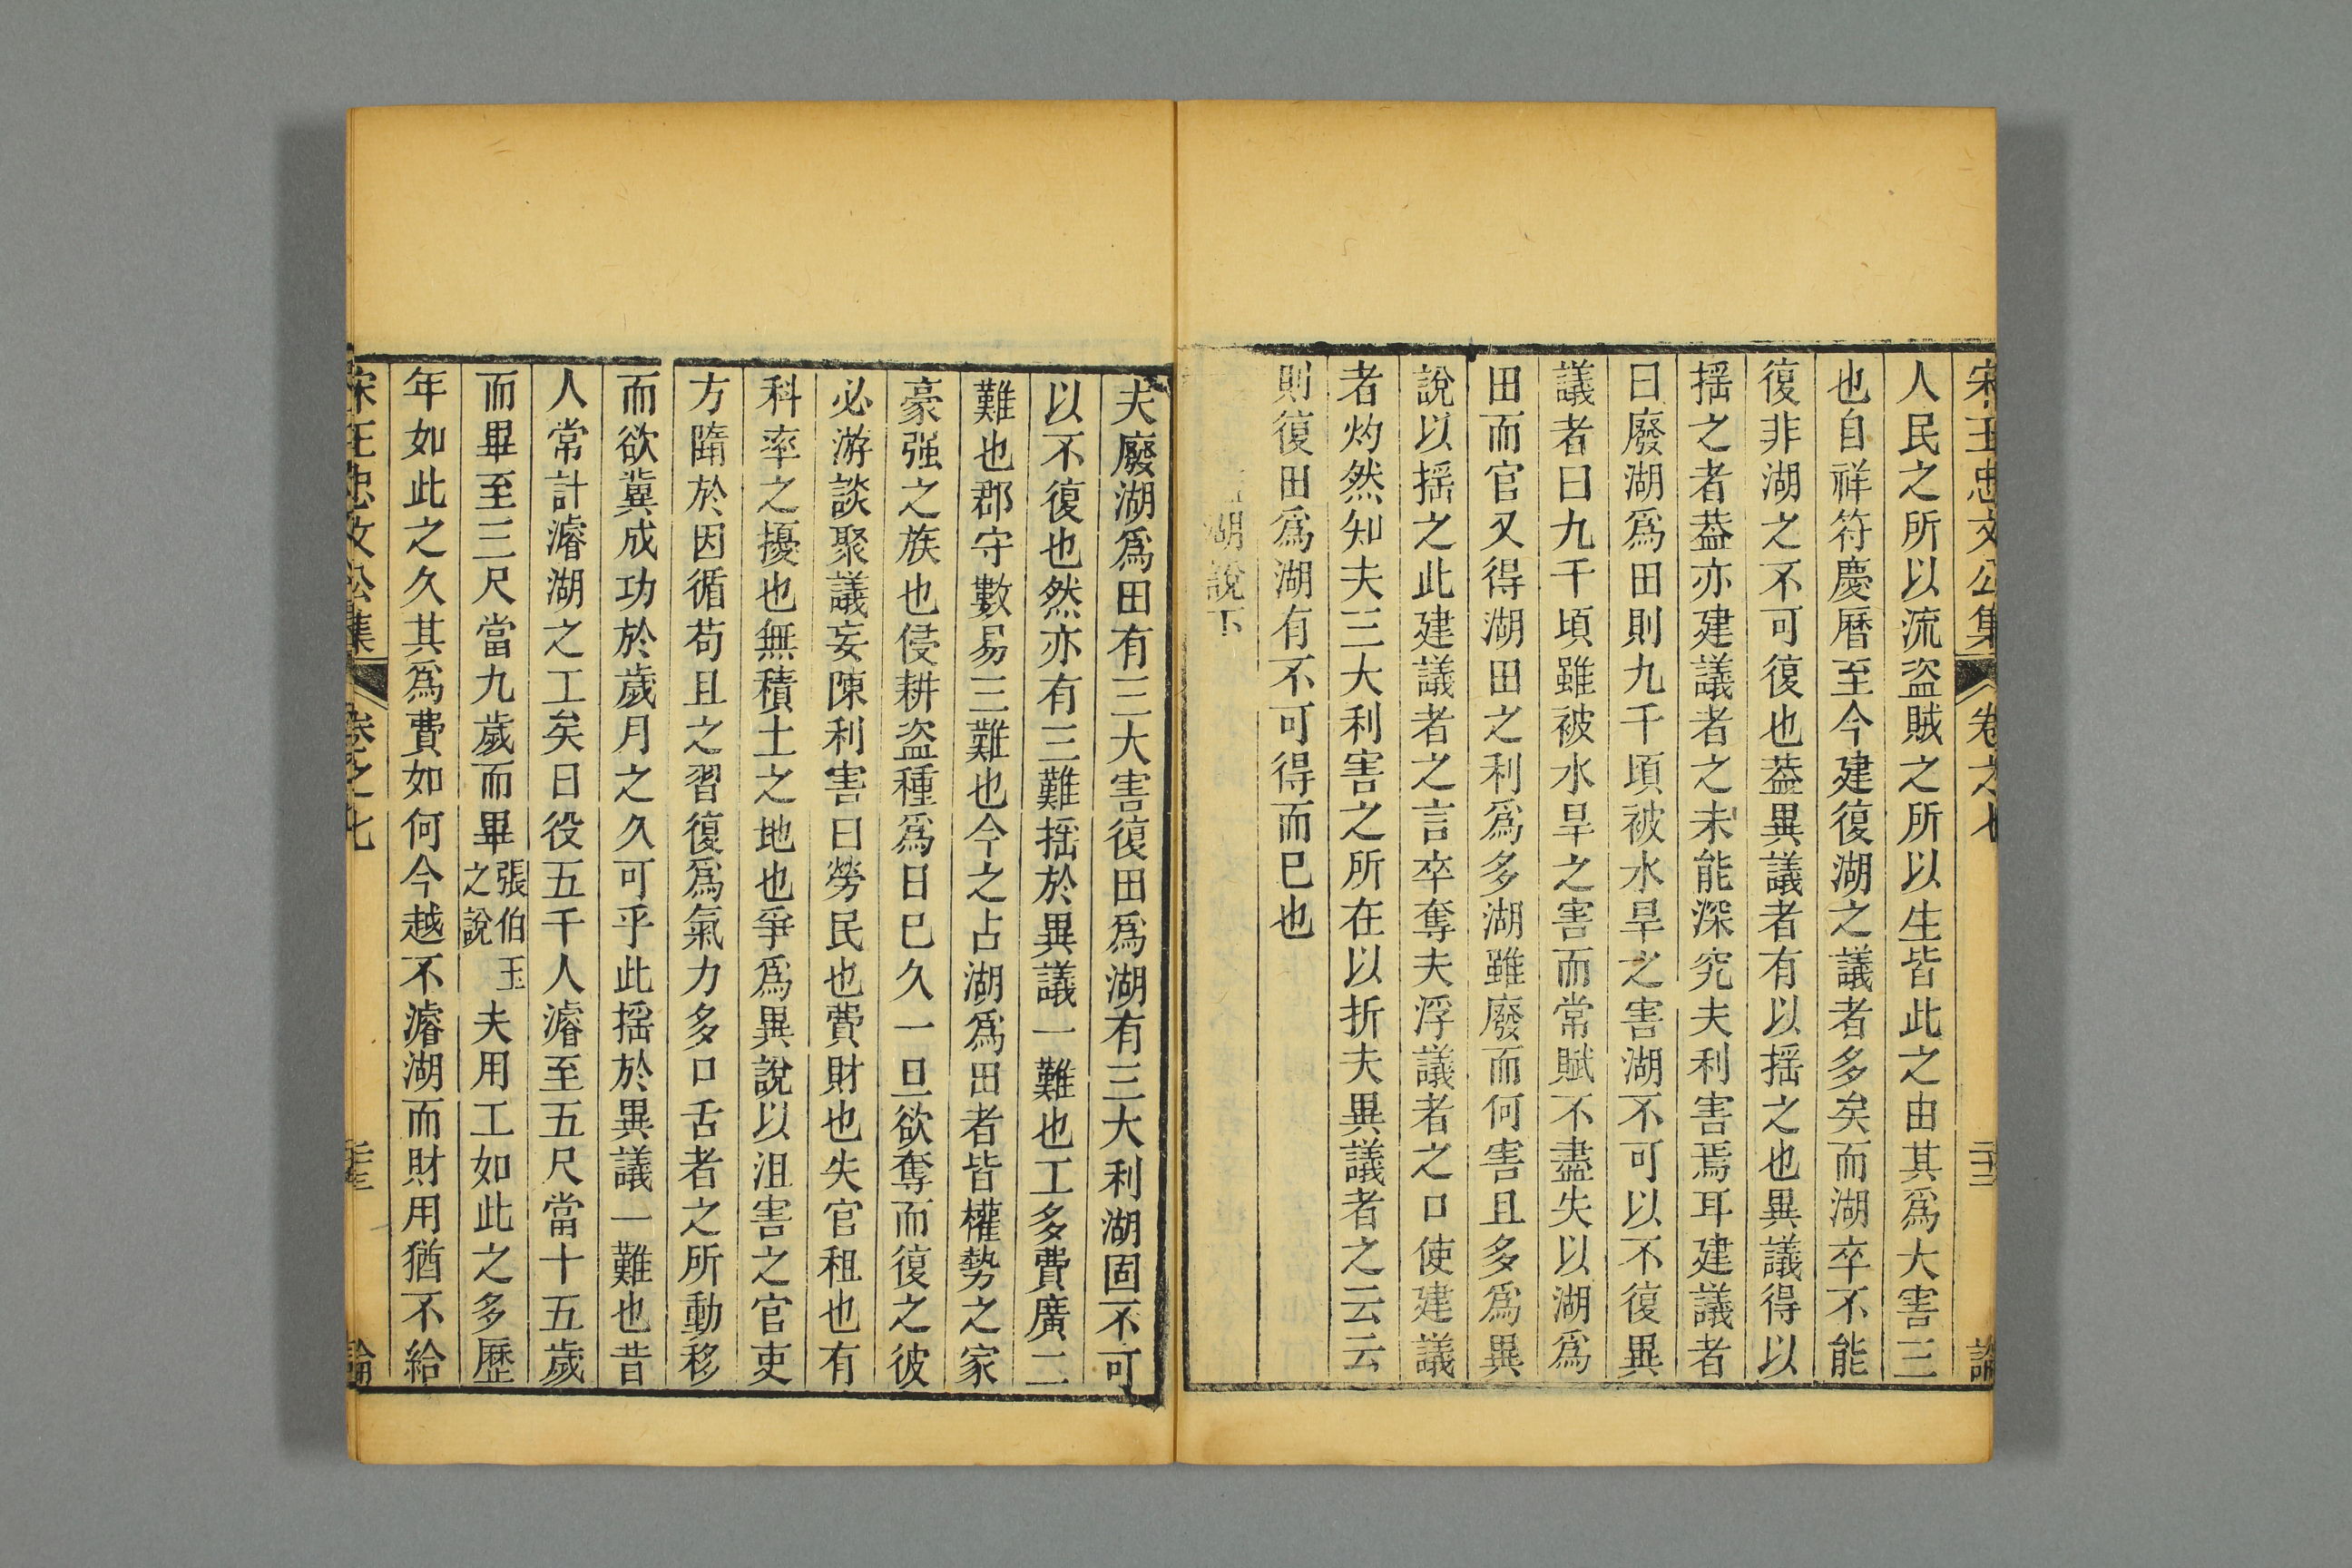 宋王忠文公集 卷之七 二十三 論
人民之所以流盜賊之所以生皆此之由其爲大害三
也自祥符慶曆至今建復湖之議者多矣而湖卒不能
復非湖之不可復也葢異議者有以揺之也異議得以
揺之者葢亦建議者之未能深究夫利害焉耳建議者
曰廢湖爲田則九千頃被水旱之害湖不可以不復異
議者曰九千頃雖被水旱之害而常賦不盡失以湖爲
田而官又得湖田之利爲多湖雖廢而何害且多爲異
說以揺之此建議者之言卒奪夫浮議者之口使建議
者灼然知夫三大利害之所在以折夫異議者之云云
則復田爲湖有不可得而已也
湖說下
夫廢湖爲田有三大害復田爲湖有三大利湖固不可
以不復也然亦有三難揺於異議一難也工多費廣二
難也郡守數易三難也今之占湖爲田者皆權勢之家
豪强之族也侵耕盜種爲日巳久一旦欲奪而復之彼
必游談聚議妄陳利害曰勞民也費財也失官租也有
科率之擾也無積土之地也爭爲異說以沮害之官吏
方隋於因循苟且之習復爲氣力多口舌者之所動移
而欲冀成功於歲月之久可乎此揺於異議一難也昔
人常計濬湖之工矣日役五千人濬至五尺當十五歲
而畢至三尺當九歲而畢張伯玉之說夫用工如此之多歷
年如此之久其爲費如何今越不濬湖而財用猶不給
宋王忠文公集 卷之七 論